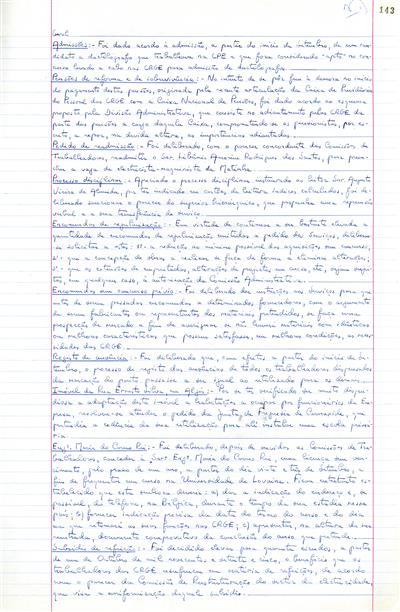 143
Geral
Admissões:- Foi dado acordo à admissão, a partir do início de outubro, de um can-
didato a dactilógrafo que trabalhava na CPE e que fora considerado apto no con-
curso levado a cabo nas CRGE para admissão de dactilógrafos.
Pensões de reforma e de sobrevivência:- No intuito de se pôr fim à demora no início
do pagamento destas pensões, originada pela articulação da Caixa de Previdência
do Pessoal das CRGE com a Caixa Nacional de Pensões, foi dado acordo ao esquema
proposto pela Divisão Administrativa, que consiste no adiantamento pelas CRGE da
parte das pensões a cargo daquela Caixa, comprometendo-se os pensionistas, por es-
crito, a repor, na devida altura, as importâncias adiantadas.
Pedido de readmissão:- Foi deliberado, com o parecer concordante das Comissões de
Trabalhadores, readmitir o Sar. Libânio Assunio Rodrigues dos Santos, para preen-
cher a vaga de electricista-maquinista de
Processo disciplinar:- Apreciado o processo disciplinar instaurado ao leitor Sar. Augusto
Vieira de Almeida, por ter indicado em cartões de leitura índices calculados, foi de-
liberado sancionar o parecer do superior hierárquico, que propunha uma repreensão
verbal e a sua transferência de serviço.
Encomendas de regularização:- Em virtude de continuar a ser bastante elevada a
quantidade de encomendas de regularização emitidas a pedido dos Serviços, delibera-
se solicitar a estes: 1º- a redução ao mínimo possível das aquisições sem concurso;
2º- que a concepção de obras a realizar se faça de forma a eliminar alterações;
3º- que os estudos de empreitadas, alterações de projectos em curso, etc., sejam sujei-
tos, em qualquer caso, à autorização da Comissão Administrativa.
Encomendas sem concurso prévio:- Foi deliberado dar instruções aos Serviços para que
antes de serem passadas encomendas a determinados fornecedores, com o argumento
de serem fabricantes ou representantes dos materiais pretendidos, se faça uma
prospecção de mercado a fim de averiguar se não haverá materiais com idênticas
ou melhores características que possam satisfazer, em melhores condições, as neces-
sidades das CRGE.
Registo de ausências:- Foi deliberado que, com efeitos a partir do início de ou-
tubro, o processo de registo das ausências de todos os trabalhadores dispensados
da marcação do ponto passasse a ser igual ao utilizado para os demais.
Imóvel da Rua Ernesto Silva, em Algés:- Por se ter verificado ser muito dispen-
diosa a adaptação deste imóvel a habitações a ocupar por funcionários da Em-
presa, resolveu-se atender o pedido da Junta de Freguesia de Carnaxide, que
pretendia a cedência da sua utilização para ali instalar uma escola primá-
ria.
Engª. Maria do Carmo Rui:- Foi deliberado, depois de ouvidas as Comissões de Tra-
balhadores, conceder à Sarª. Engª. Maria do Carmo Rui, uma licença sem ven-
cimento, pelo prazo de um ano, a partir do dia vinte e três de outubro, a
fim de frequentar um curso na Universidade de Lovaina. Ficou entretanto es-
tabelecido que esta senhora deverá: a) dar a indicação do endereço e, se
possível, do telefone, na Bélgica, durante o tempo da sua estadia nesse
país; b) fornecer indicação precisa da data do termo do curso e do dia
em que retomará as suas funções nas CRGE; c) apresentar, na altura do seu
regresso, documento comprovativo da conclusão do curso que pretende.
Subsídio de refeição:- Foi decidido elevar para quarenta escudos, a partir
de um de Outubro de mil novecentos e setenta e cinco, o benefício que os
trabalhadores das CRGE usufruem em matéria de refeições, de acordo
com o parecer da Comissão de Reestruturação do sector da electricidade,
que visa a uniformização daquele subsídio.